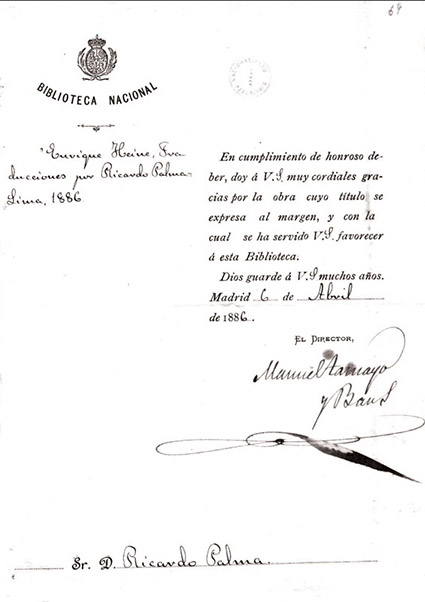 69
BIBLIOTECA NACIONAL
"Enrique Heine, Tra
ducciones por Ricardo Palma-
Lima, 1886
En cumplimiento de honroso de-
ber, doy á V.S. muy cordiales gra-
cias por la obra cuyo título se
expresa al margen, y con la
cual se ha servido V.S. favorecer
á esta Biblioteca.
Dios guarde á V.S. muchos años.
Madrid 6 de Abril
de 1886.
EL DIRECTOR,
Manuel Tamayo
y Baus
Sr. D. Ricardo Palma.